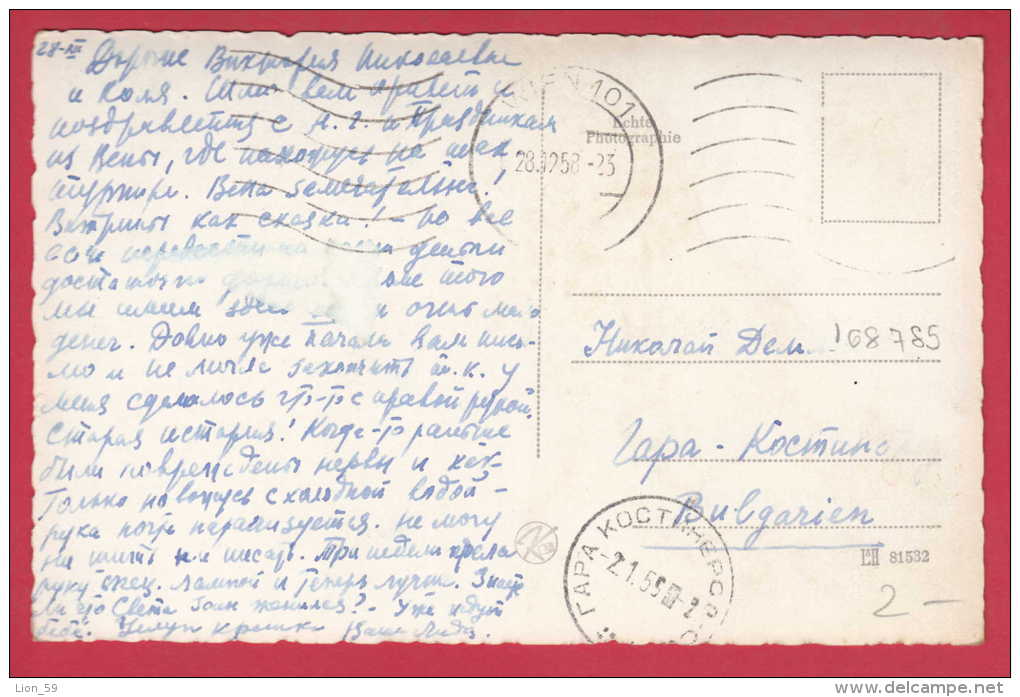 28-XII Дорогие Виктория Николаевна
и Коля. Шлю вам привет и
поздравления с Н. Г. и праздником
из Вены, где нахожусь на
Вена замечательна!
Витрины как сказка! - но все
деньги
достаточно того
мы имеем здесь очень мало
денег. Давно уже начала вам пись-
мо и не могла закончить т.к. у
меня сделалось что-то с правой рукой.
Старая история! Когда-то раньше
были повреждены нервы и
только навожусь с холодной водой -
рука почти парализуется. Не могу
ни шить ни писать. Три недели грела
руку спец. лампой и теперь лучше. Знаете
ли что Света женился? - Уже ждут
бебе. Целую крепко Ваша Лида.
WIEN 101
28.12.58-23
Echte
Photographie
Николай Дем
168785
Гара - Костин
Bulgarien
ГАРА КОСТИНБРОД
-2.1.59
81532
2 -
Lion_59
http://www.delcampe.net